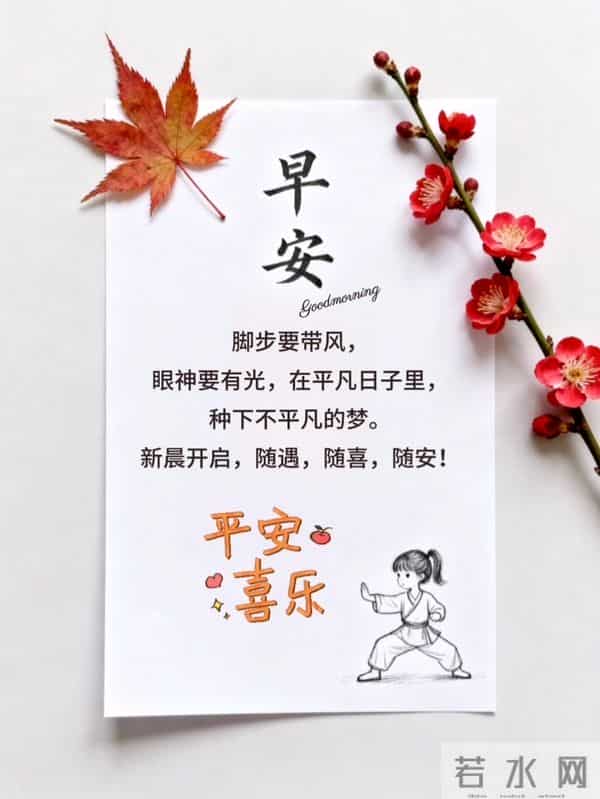 早安
Goodmorning
脚步要带风，
眼神要有光，在平凡日子里，
种下不平凡的梦。
新晨开启，随遇，随喜，随安！
平安
喜乐
若水网